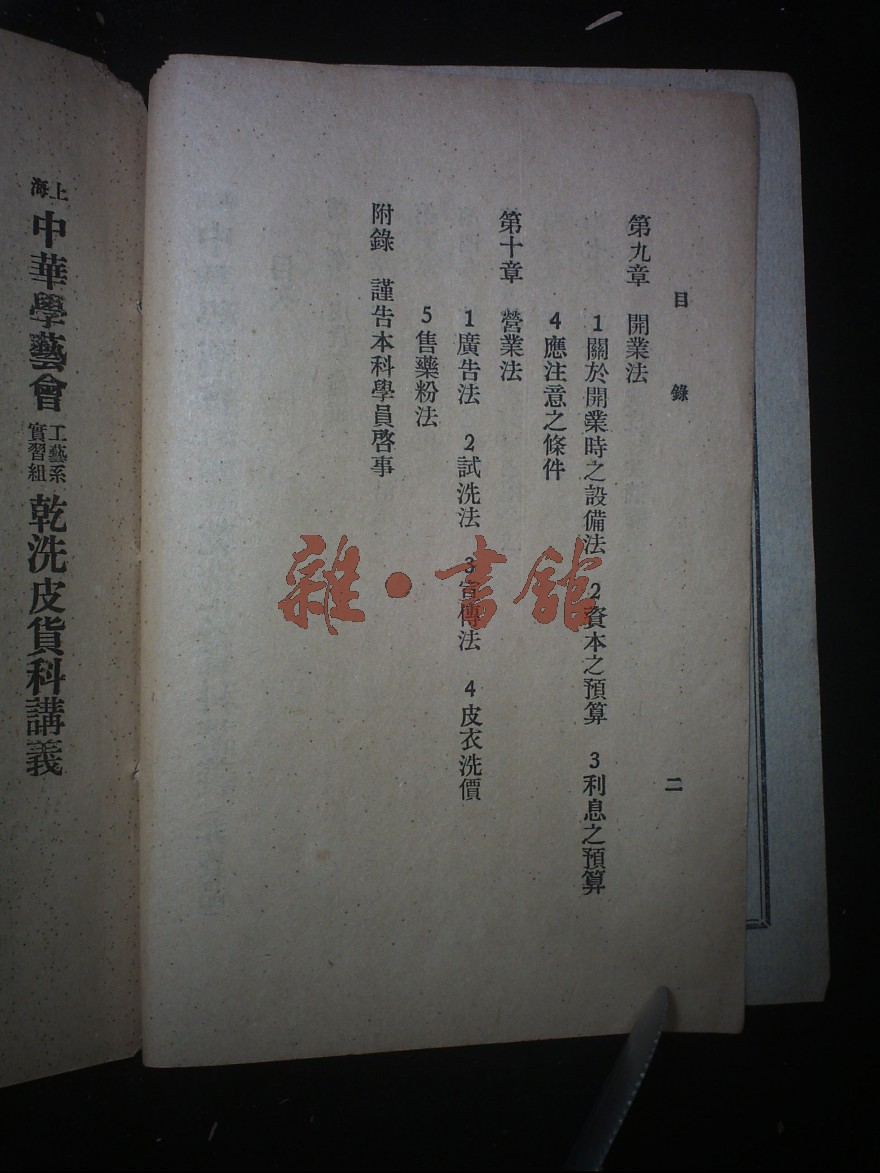 目錄 二
第九章 開業法
1關於開業時之設備法 2資本之預算 3利息之預算
4應注意之條件
第十章 營業法
1廣告法 2試洗法 3宣傳法 4皮衣洗價
5售藥粉法
附錄 謹告本科學員啓事
上海中華學藝會工藝系實習組乾洗皮貨科講義
雜·書館